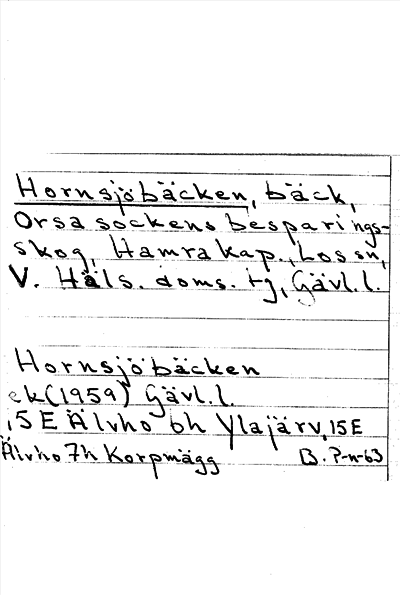 Hornsjöbäcken, bäck,
Orsa sockens besparings-
skog, Hamra kap., Los sn,
V. Häls. doms. tj, Gävl. l.
Hornsjöbäcken
ek (1959) Gävl. l.
15 E Älvho 6h Ylajärv, 15 E
Älvho 7h Korpmägg B. P-n-63